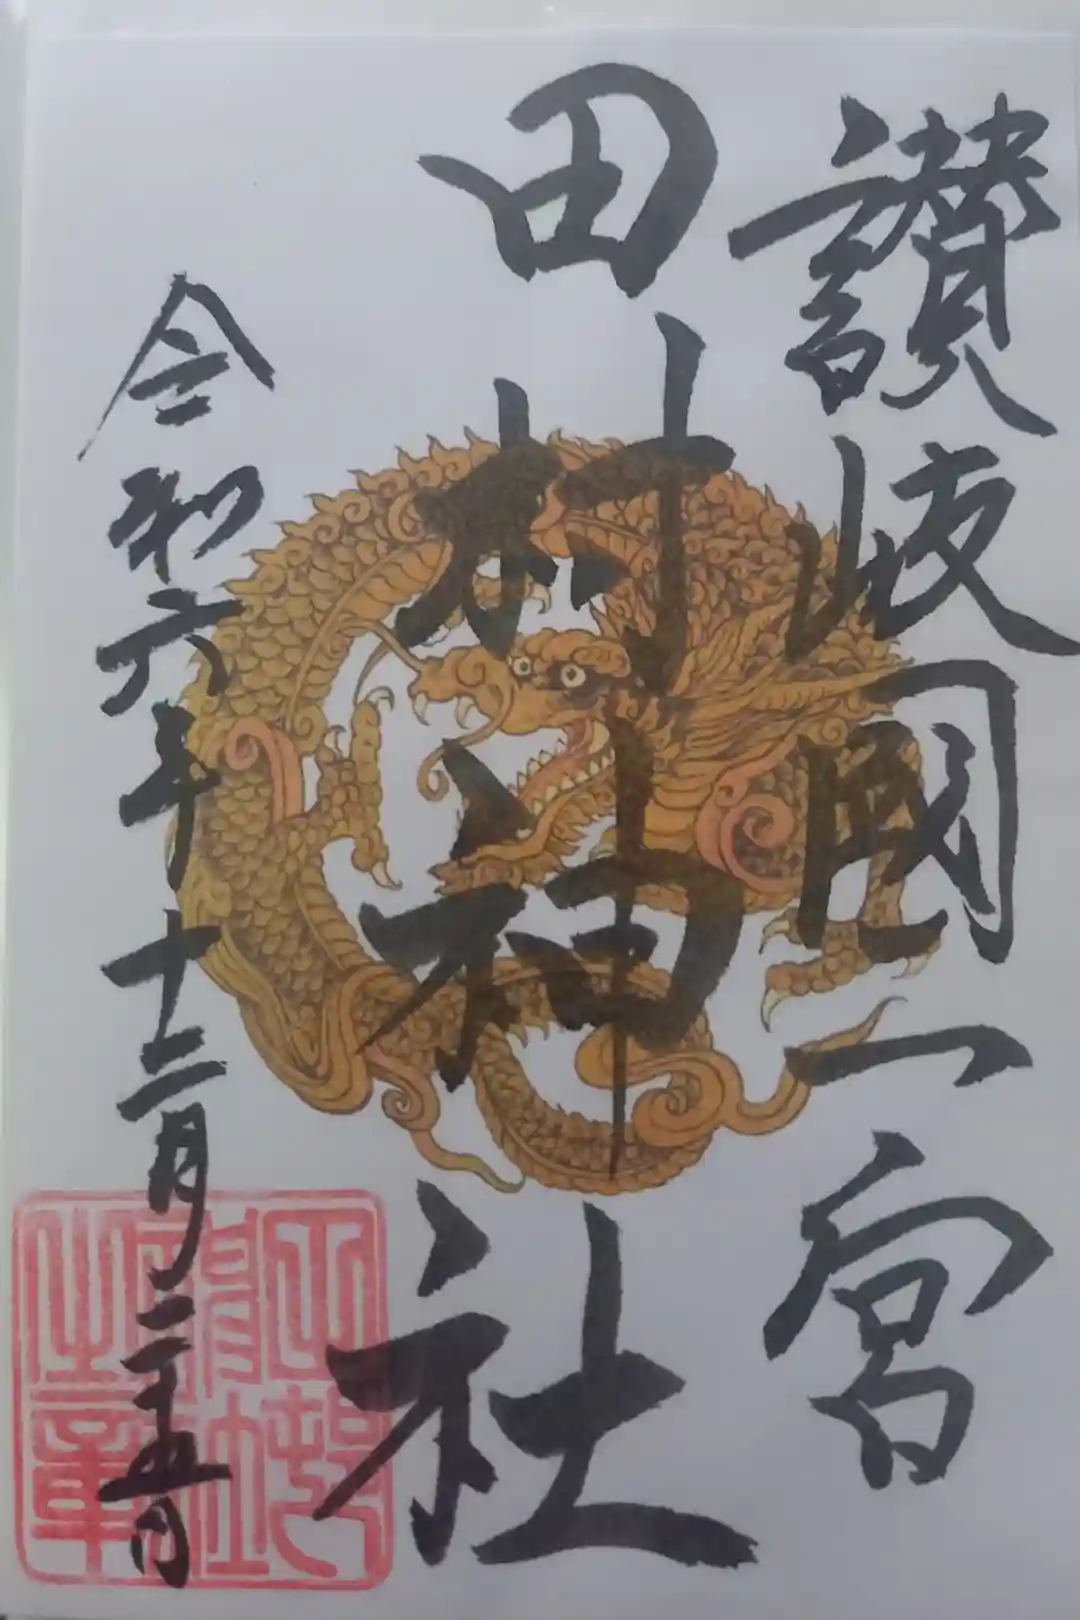 讃岐國一宮
田村神社
令和六年十二月二十五日